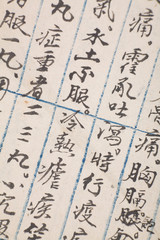 痛胸膈
痛。霍乱吐瀉。時行疫
氣、水土不服。冷熱瘧疾
丸。症重者二三丸。小兒
服一丸